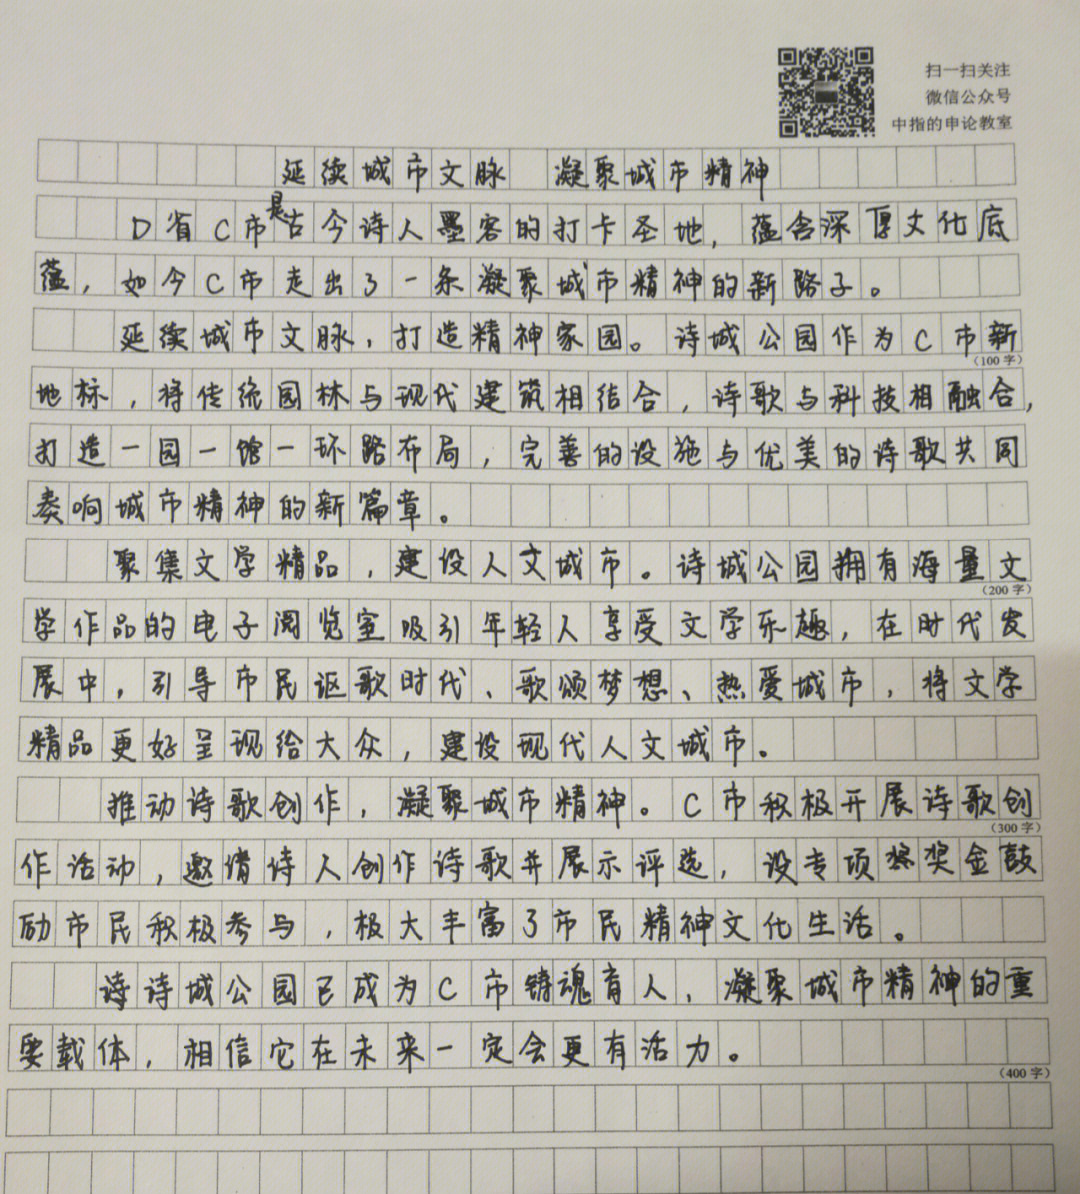 扫一扫关注
微信公众号
中指的申论教室
延续城市文脉 凝聚城市精神
D省C市是古今诗人墨客的打卡圣地，蕴含深厚文化底
蕴，如今C市走出了一条凝聚城市精神的新路子。
延续城市文脉，打造精神家园。诗城公园作为C市新
(100字)
地标，将传统园林与现代建筑相结合，诗歌与科技相融合，
打造一园一馆一环路布局，完善的设施与优美的诗歌共同
奏响城市精神的新篇章。
聚集文学精品，建设人文城市。诗城公园拥有海量文
(200字)
学作品的电子阅览室吸引年轻人享受文学乐趣，在时代发
展中，引导市民讴歌时代、歌颂梦想、热爱城市，将文学
精品更好呈现给大众，建设现代人文城市。
推动诗歌创作，凝聚城市精神。C市积极开展诗歌创
(300字)
作活动，邀请诗人创作诗歌并展示评选，设专项奖金鼓
励市民积极参与，极大丰富了市民精神文化生活。
诗诗城公园已成为C市铸魂育人，凝聚城市精神的重
要载体，相信它在未来一定会更有活力。
(400字)